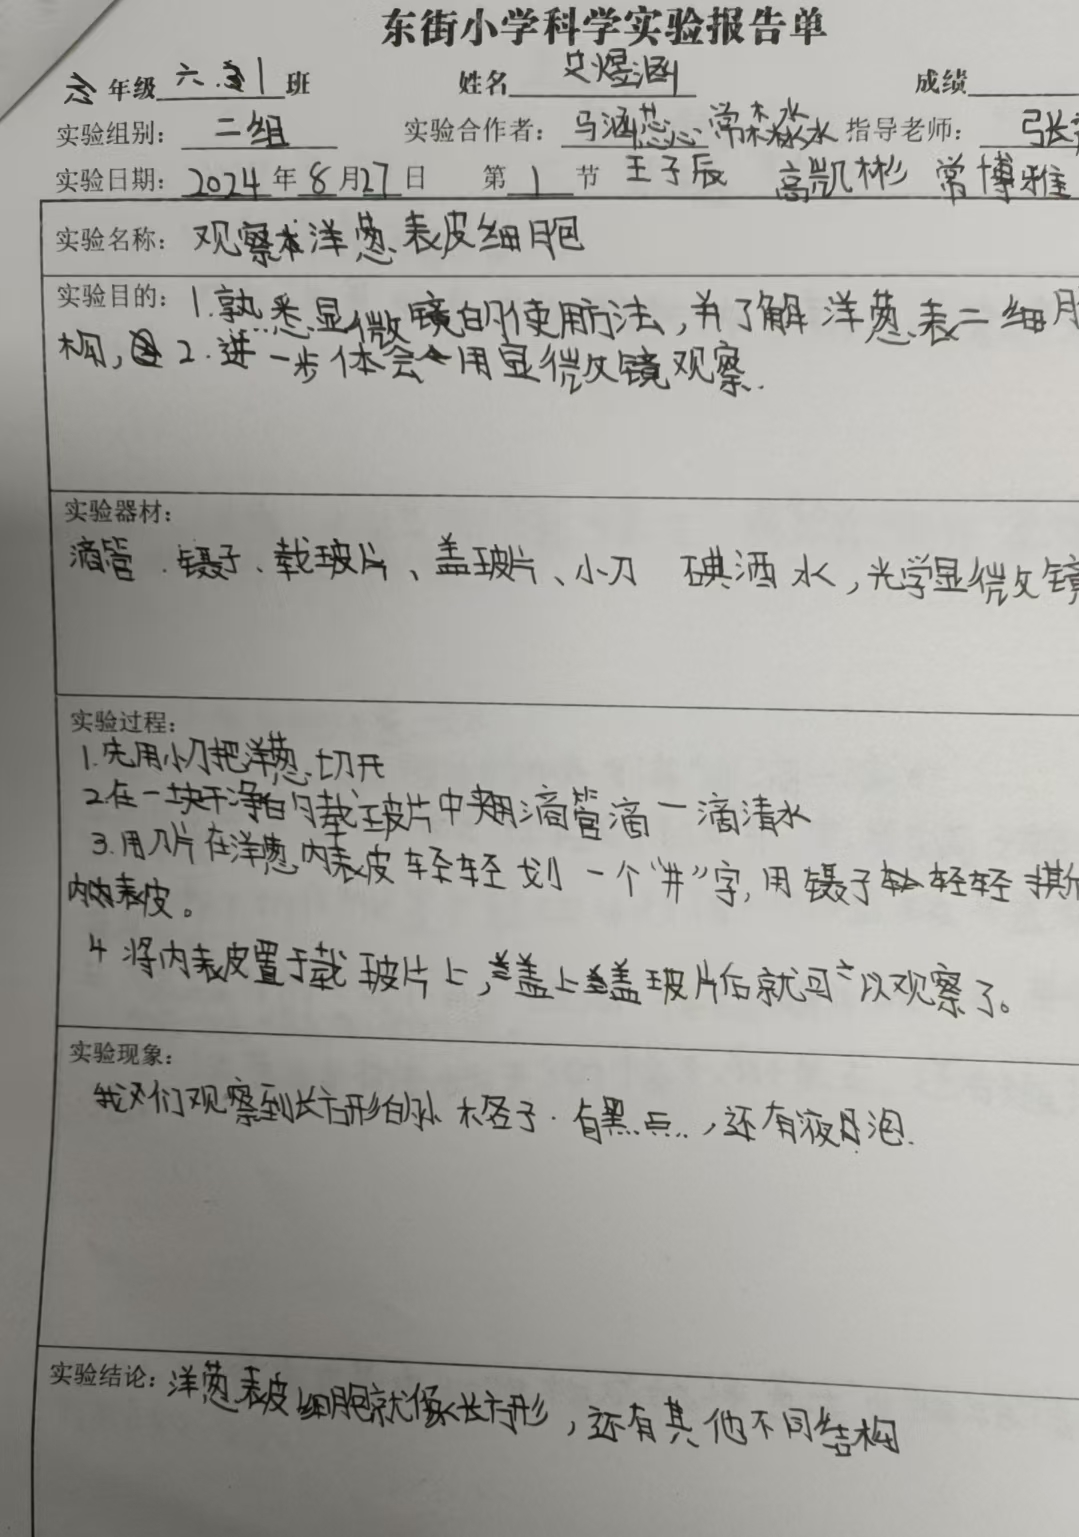 东街小学科学实验报告单
年级 六.1 班 姓名 史煜涵 成绩
实验组别: 二组 实验合作者: 马涵蕊 常森淼 指导老师: 张
实验日期: 2024 年 8 月 27 日 第 1 节 王子辰 高凯彬 常博雅
实验名称: 观察洋葱表皮细胞
实验目的: 1.熟悉显微镜的使用方法,并了解洋葱表二细
构, 2.进一步体会用显微镜观察.
实验器材:
滴管.镊子、载玻片、盖玻片、小刀 碘酒 水,光学显微镜
实验过程:
1.先用小刀把洋葱切开
2.在一块干净的载玻片中央用滴管滴一滴清水
3.用刀片在洋葱内表皮轻轻划一个“井”字,用镊子轻轻撕
内表皮。
4 将内表皮置于载玻片上,盖上盖玻片后就可以观察了。
实验现象:
我们观察到长方形的小格子.有黑点..,还有液泡.
实验结论: 洋葱表皮细胞就像长方形,还有其他不同结构